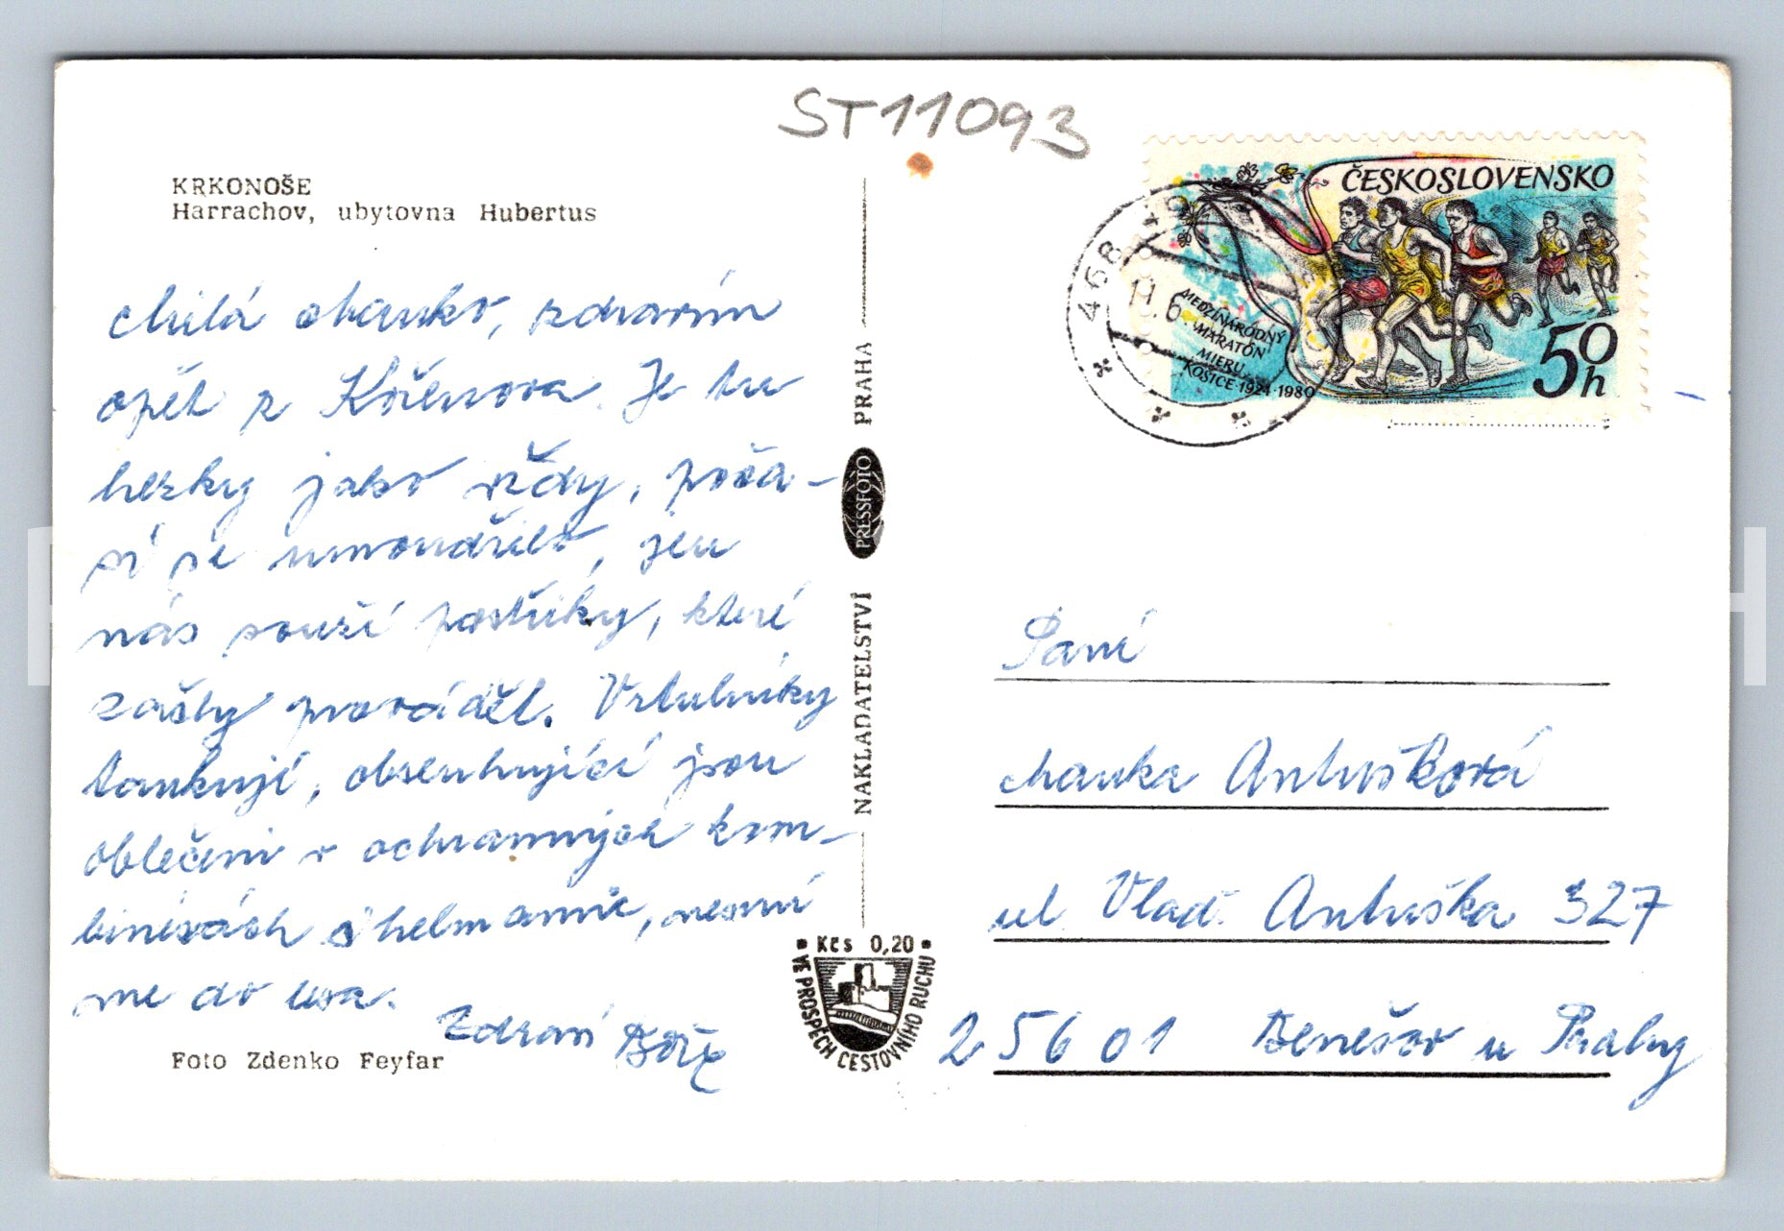 ST11093
KRKONOŠE
Harrachov, ubytovna Hubertus
Milá Hanko, zdravím
opět z Kořenova. Je tu
hezky jako vždy, poča-
sí se umoudřilo, jen
nás souží postřiky, které
začly provádět. Vrtulníky
tankují, obsluhující jsou
oblečeni v ochranných kom-
binézách s helmami, nesmí
me do lesa.
Zdraví
Foto Zdenko Feyfar
NAKLADATELSTVÍ PRESSFOTO PRAHA
Kčs 0,20
VE PROSPĚCH CESTOVNÍHO RUCHU
ČESKOSLOVENSKO
MEDZINÁRODNÝ
MARATÓN
MIERU
KOŠICE · 1924 · 1980
50 h
468
Paní
Hanka Antušková
ul Vlad. Antuška 327
25601 Benešov u Prahy